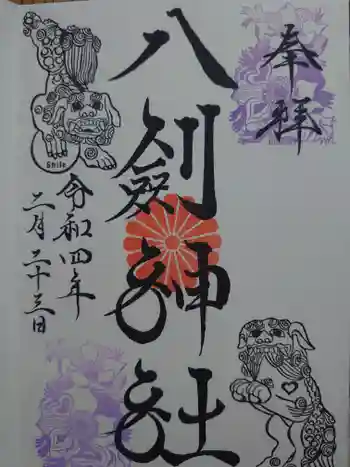 奉拝
八劔神社
令和四年
二月二十三日
Smile